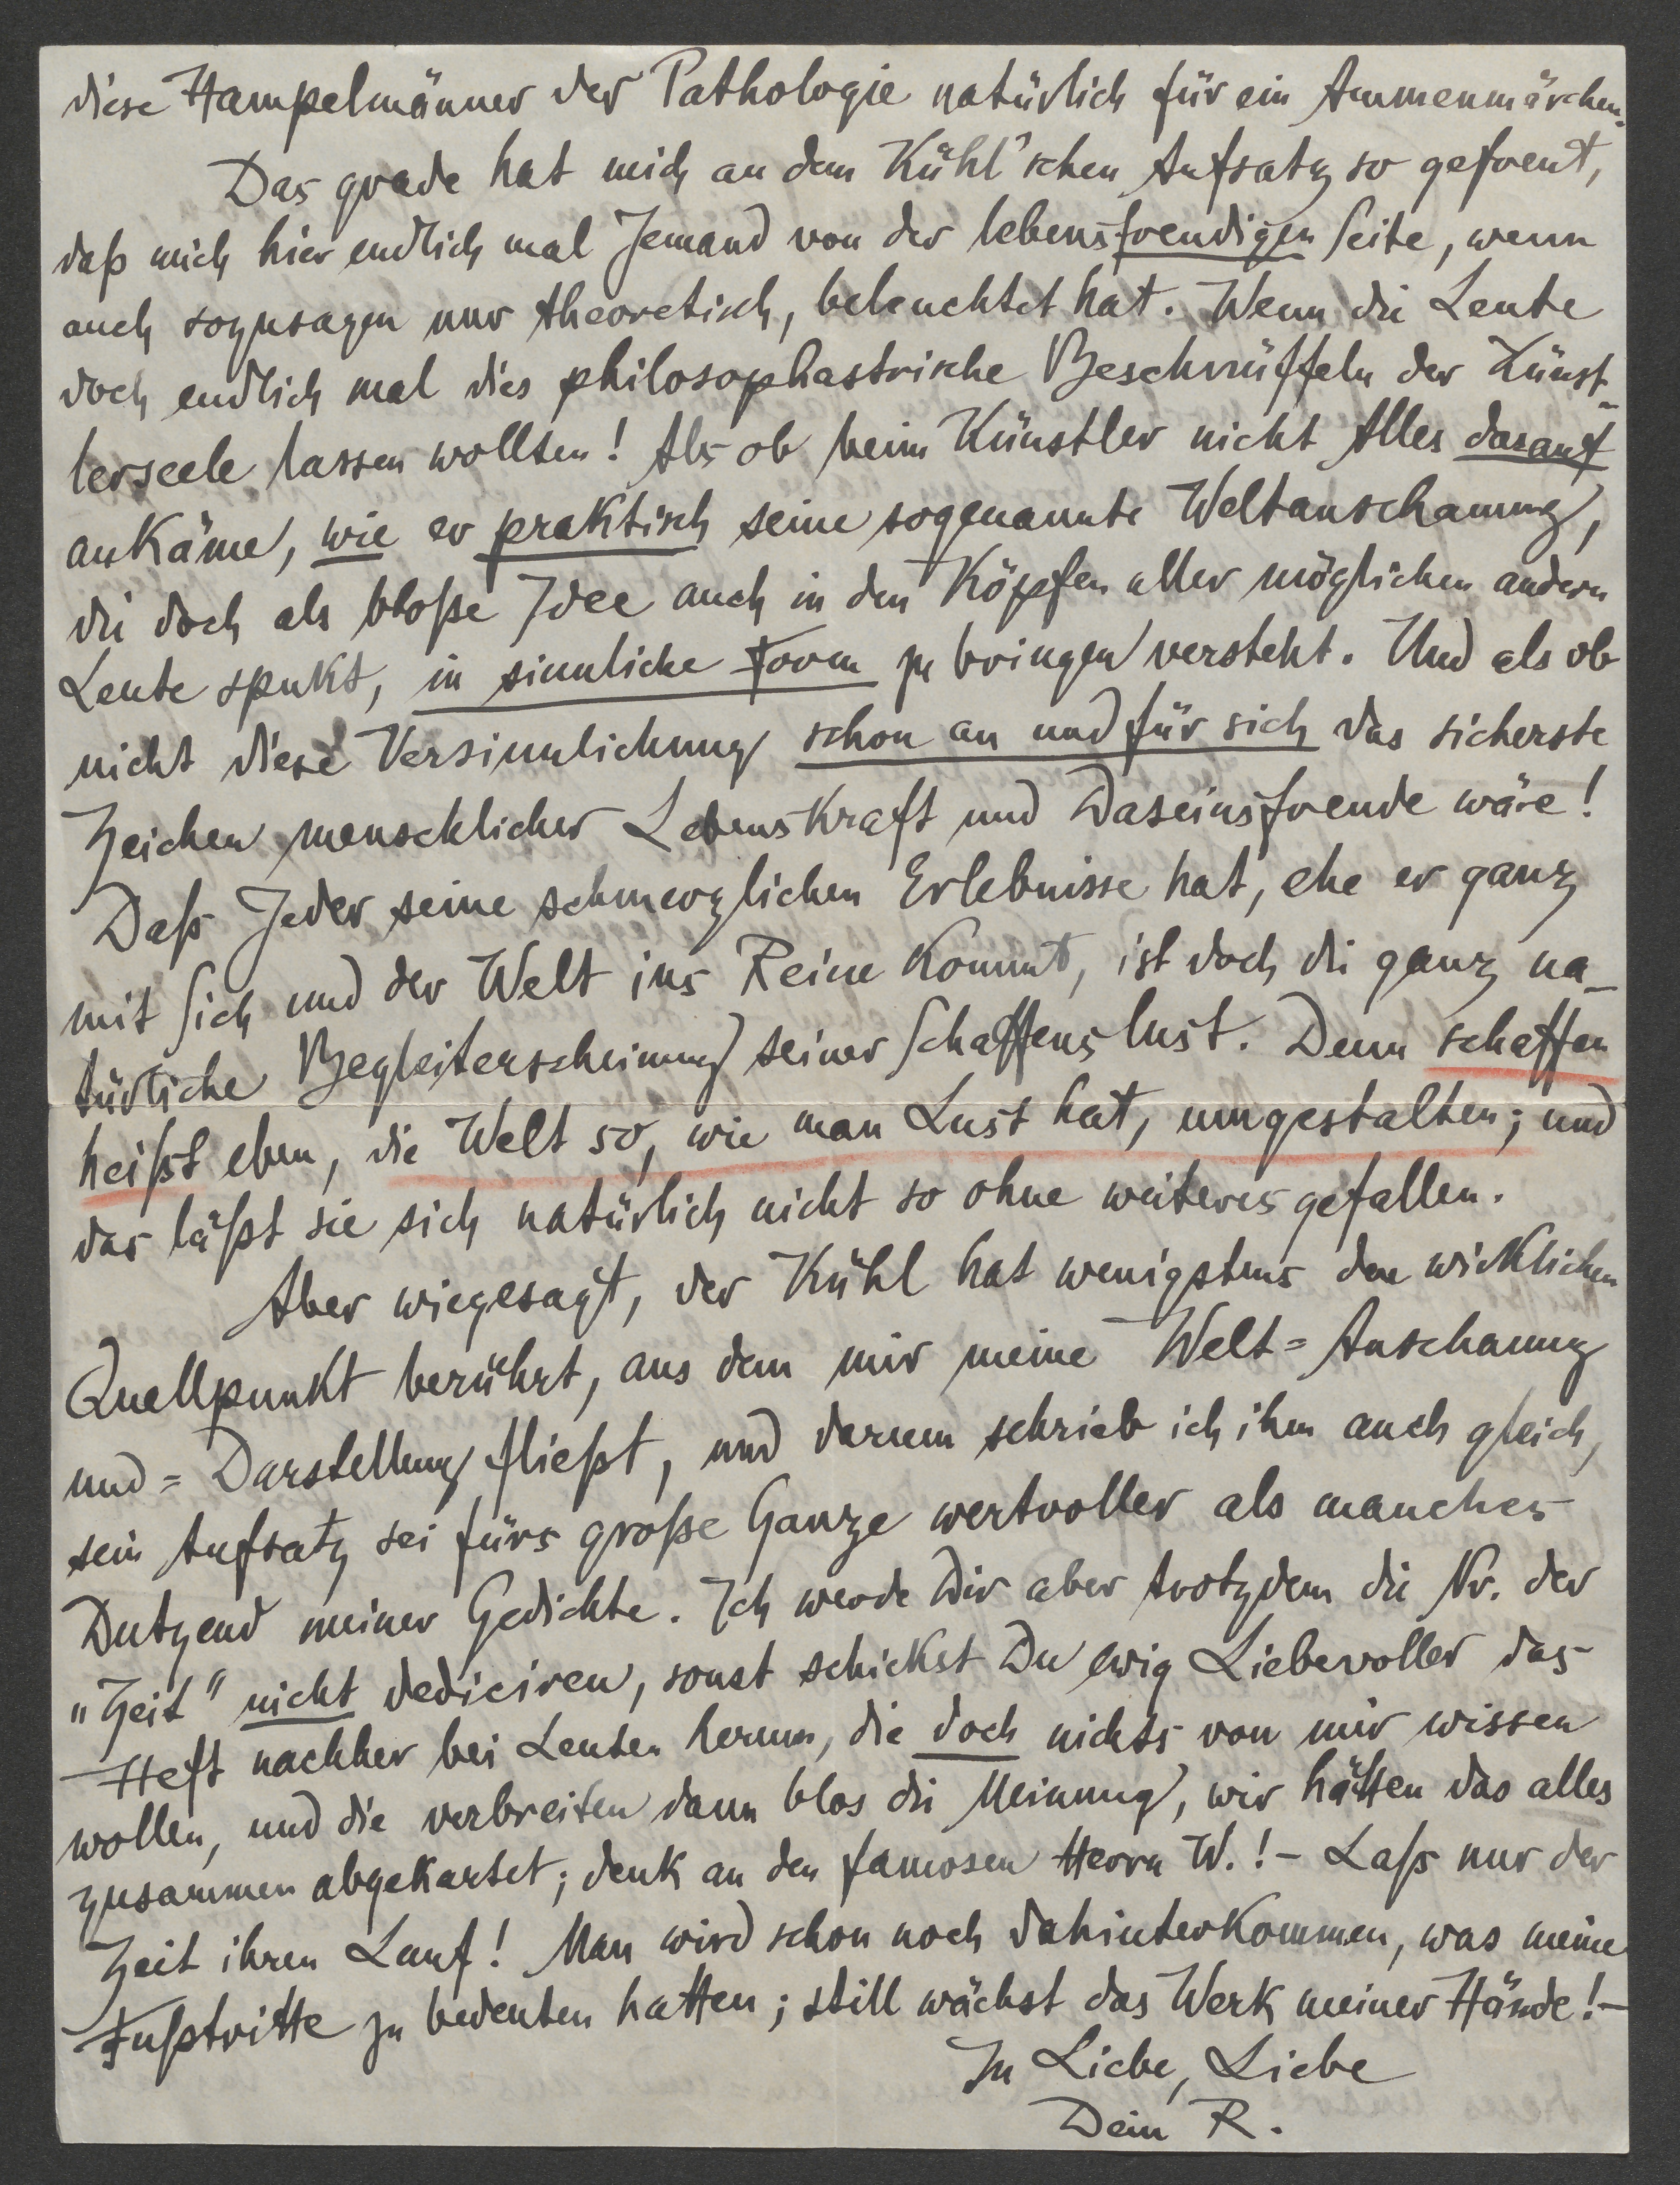 diese Hampelmänner der Pathologie natürlich für ein Ammenmärchen.
Das grade hat mich an dem Kühl'schen Aufsatz so gefreut,
daß mich hier endlich mal Jemand von der lebensfreudigen Seite, wenn
auch sozusagen nur theoretisch, beleuchtet hat. Wenn die Leute
doch endlich mal dies philosophastrische Beschnüffeln der Künst-
lerseele lassen wollten! Als ob beim Künstler nicht Alles darauf
ankäme, wie er praktisch seine sogenannte Weltanschauung,
die doch als bloße Idee auch in den Köpfen aller möglichen andern
Leute spukt, in sinnliche Form zu bringen versteht. Und als ob
nicht diese Versinnlichung schon an und für sich das sicherste
Zeichen menschlicher Lebenskraft und Daseinsfreude wäre!
Daß Jeder seine schmerzlichen Erlebnisse hat, ehe er ganz
mit Sich und der Welt ins Reine kommt, ist doch die ganz na-
türliche Begleiterscheinung seiner Schaffenslust. Denn schaffen
heißt eben, die Welt so, wie man Lust hat, umgestalten; und
das läßt sie sich natürlich nicht so ohne weiteres gefallen.
Aber wiegesagt, der Kühl hat wenigstens den wirklichen
Quellpunkt berührt, aus dem mir meine Welt=Anschauung
und =Darstellung fließt, und darum schrieb ich ihm auch gleich,
sein Aufsatz sei fürs große Ganze wertvoller als manches
Dutzend meiner Gedichte. Ich werde Dir aber trotzdem die Nr. der
„Zeit" nicht dediciren, sonst schickst Du ewig Liebevoller das
Heft nachher bei Leuten herum, die doch nichts von mir wissen
wollen, und die verbreiten dann blos die Meinung, wir hätten das alles
zusammen abgekartet; denk an den famosen Herrn W.! – Laß nur der
Zeit ihren Lauf! Man wird schon noch dahinterkommen, was meine
Fußtritte zu bedeuten hatten; still wächst das Werk meiner Hände! –
In Liebe, Liebe
Dein R.